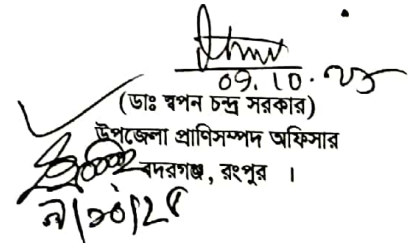 09.10.২৫
(ডাঃ স্বপন চন্দ্র সরকার)
উপজেলা প্রাণিসম্পদ অফিসার
বদরগঞ্জ, রংপুর ।